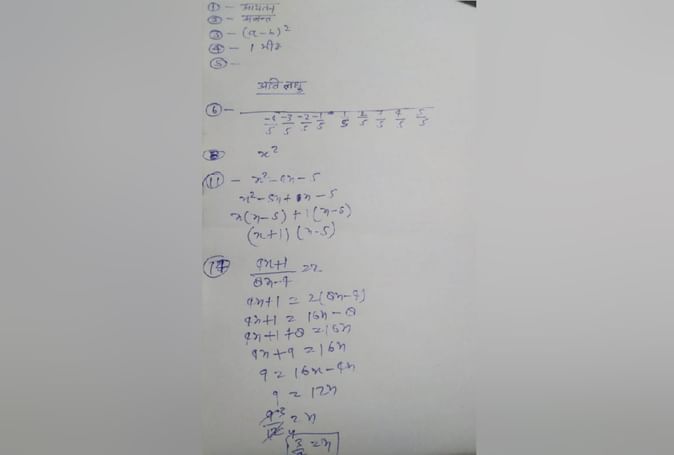 ① - आयतन
② - अनन्त
③ - (a-b)²
④ - 1 मीटर
⑤ -
अति लघु
⑥ -
-4/5 -3/5 -2/5 -1/5 1/5 2/5 3/5 4/5 5/5
x²
⑪ - x² - 4x - 5
x² - 5x + 1x - 5
x(x-5) + 1(x-5)
(x+1) (x-5)
⑰ (4x+1)/(8x-4) = 2
4x+1 = 2(8x-4)
4x+1 = 16x - 8
4x+1+8 = 16x
4x+9 = 16x
9 = 16x-4x
9 = 12x
9/12 = x
3/4 = x